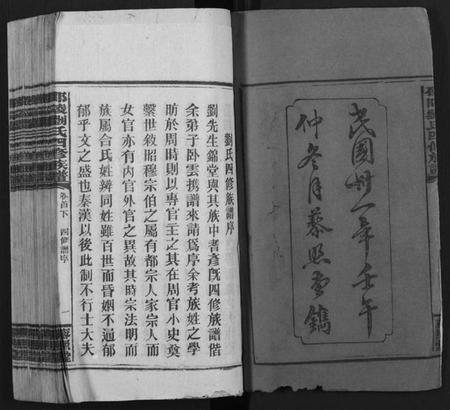 民國卅一年壬午
仲冬月藜照堂鐫
劉氏四修族譜序
劉先生錦堂與其族中耆彥旣四修族譜偕
余弟子臥雲携譜來請爲序余考族姓之學
昉於周時則以專官主之其在周官小史奠
繫世敘昭穆宗伯之屬有都宗人家宗人而
女官亦有內官外官之異故其時宗法明而
族屬合氏姓辨同姓雖百世而昏姻不通郁
郁乎文之盛也秦漢以後此制不行士大夫
劉氏四修族譜
卷首下
四修譜序
一